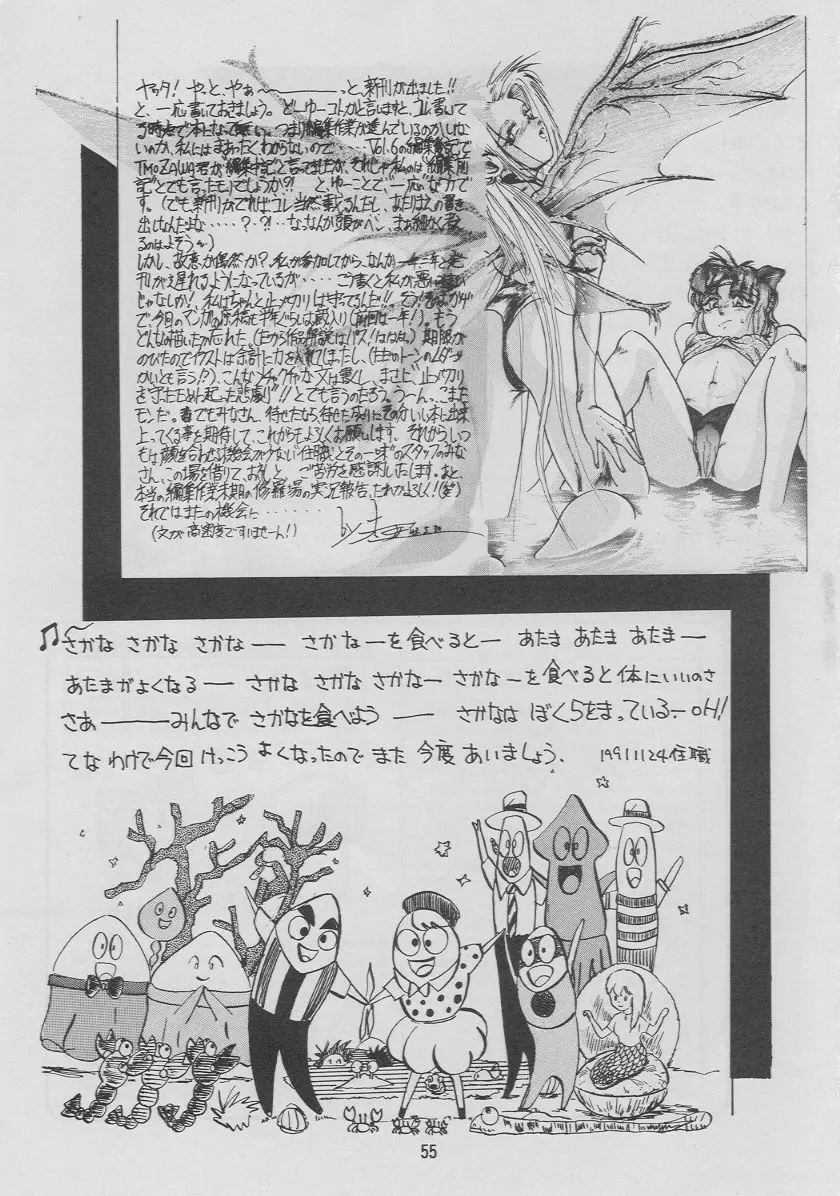 ヤッタ! やっと、やぁ〜〜――――っと、新刊が出ました!!
と、一応書いておきましょう。どーゆーコトかと言いますと、コレ書いて
る時点で本になって無い。つまり編集作業が進んでいるのかいない
のか、私にはまぁったくわからないので‥‥‥Vol.6の編集後記で
TMOZAWA君が編集中記と言ってましたが、それじゃ私のは"編集前
記"とでも言ったモノでしょうか?! とゆーことで、一応なワケで
す。(でも新刊がでればコレ当然載るんだし、あたりまえの書き
出しなんだよな‥‥‥?・?!‥なっなんか頭がヘン、まぁ細かく考え
るのはよそう〜)
しかし、故意か偶然か?、私が参加してから、なんか一年二年と発
刊が遅れるようになっているが‥‥‥こう書くと私が悪い
じゃなしか!、私はちゃんと〆メ切りは守ってるんだ!!
で、今日のマンガの原稿も半年ぐらいは蔵入り(前回は一年!)。もう
どんなの描いたか忘れた(だから作品解説はパス!)期限が
のびたのでイラストは余計に力を入れてしまったし、
かいとも言う!?)、こんなメチャクチャな文は書くし、まさに"〆メ切り
を守ったために起こった悲劇"!!とでも言うのだろう。う〜ん、こまった
モンだ。でもみなさん、待せたなら、待せたなりにそのかいし本に出来
上ってくる事を期待して、これからもよろしくお願いします。それから、いつ
もは顔を合わせる機会が少ない"住職とその一味"のスタッフのみな
さん、この場を借りて、お礼と、ご苦労を感謝いたします。あと、
本当の編集作業末期の修羅場の実況報告、だれかよろしく!(笑)
それではまたの機会に‥‥‥‥‥
by
(文が高密度ですいませーん!)
♫〜さかな さかな さかな―― さかなーを食べると― あたま あたま あたま―
あたまがよくなる―― さかな さかな さかなー さかな〜を食べると体にいいのさ
さあ――――みんなで さかなを食べよう―― さかなは ぼくらをまっている〜OH!
てな わけで今回 けっこう よくなったので また 今度 あいましょう. 19911124住職
55